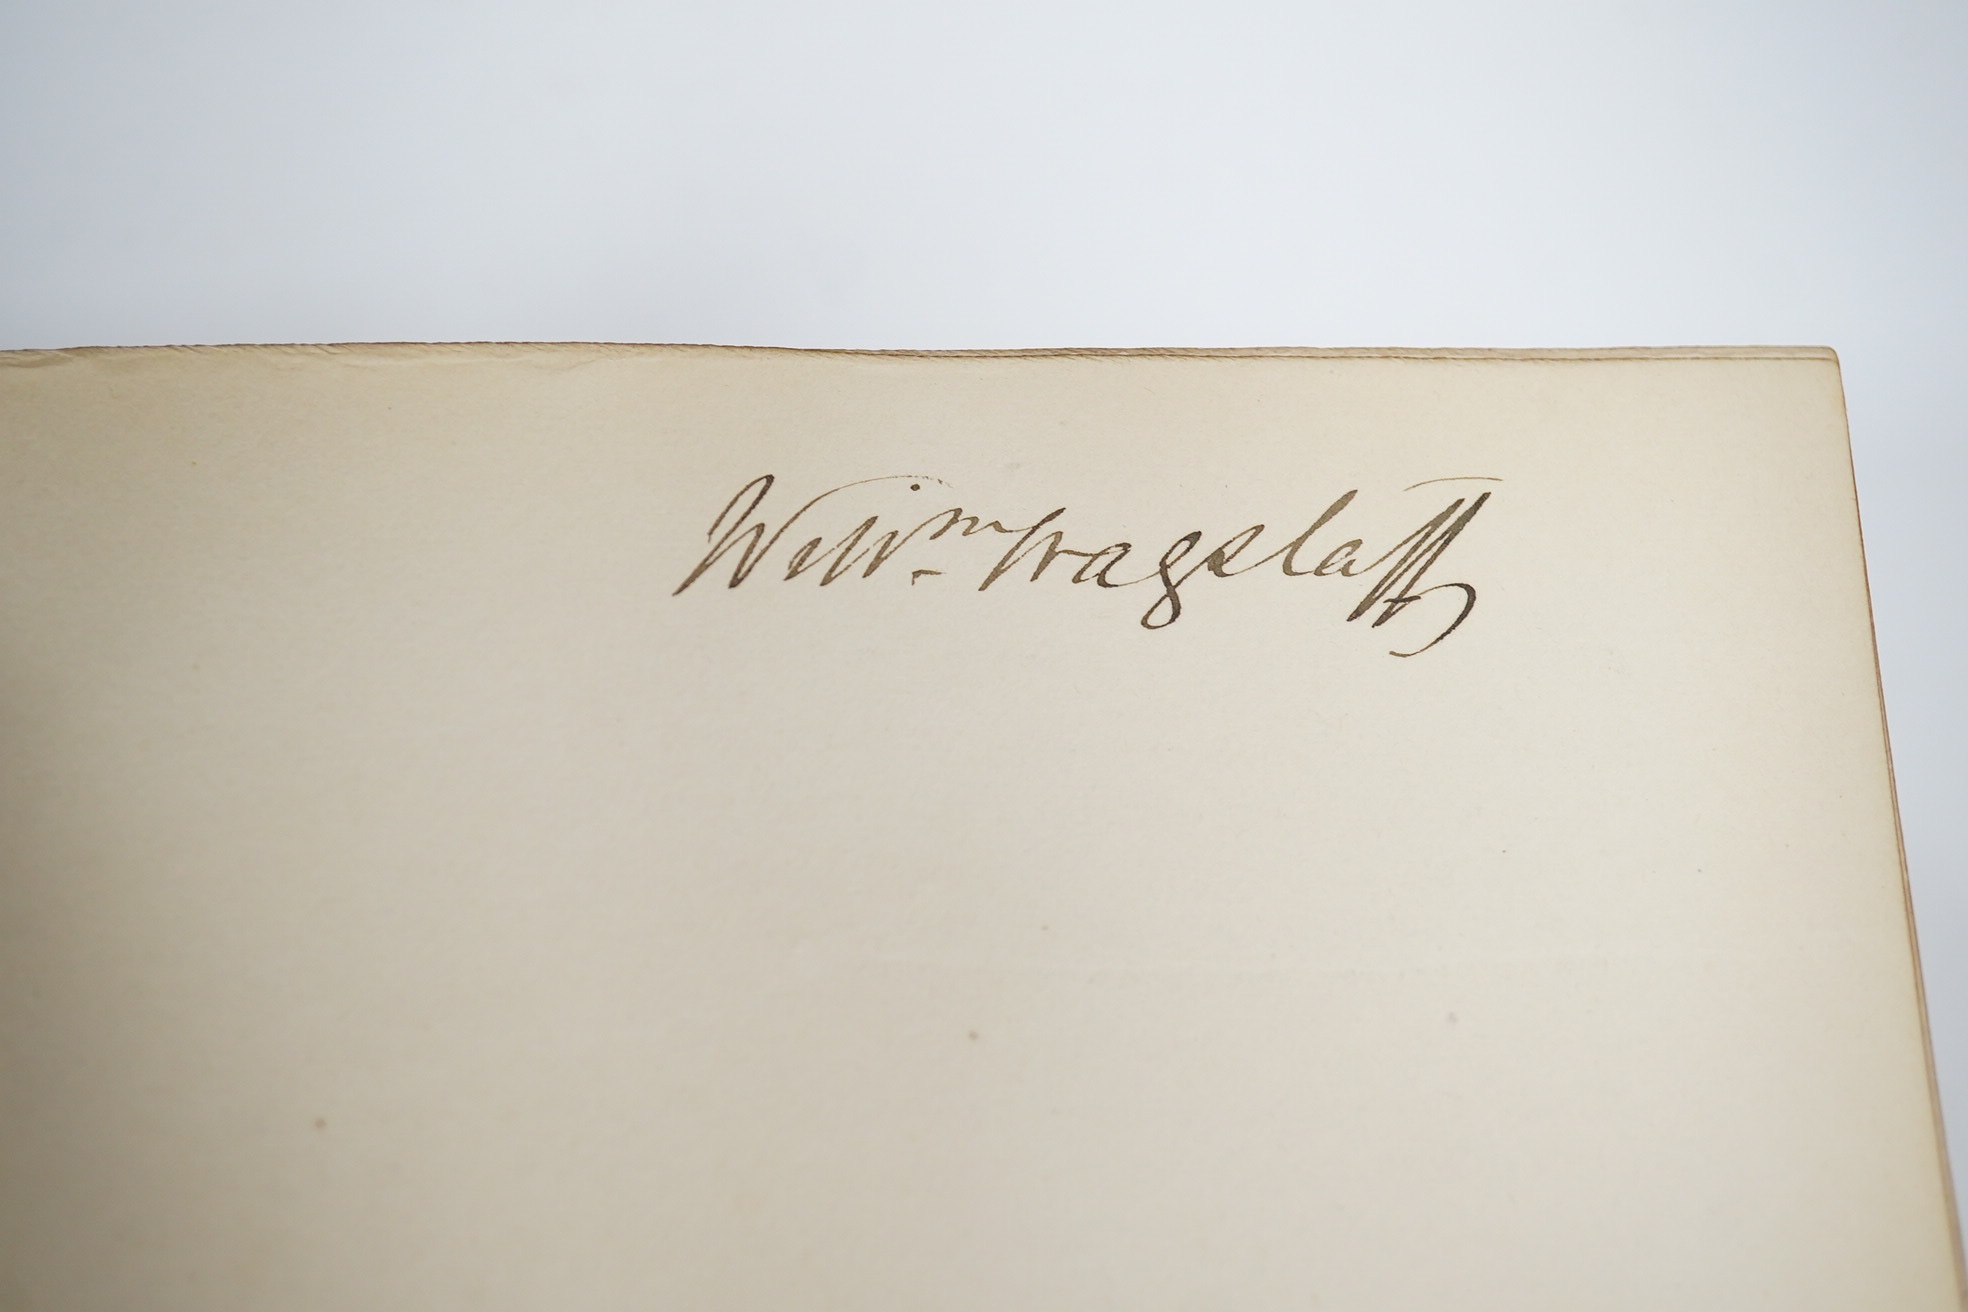 Will^m Wagstaff